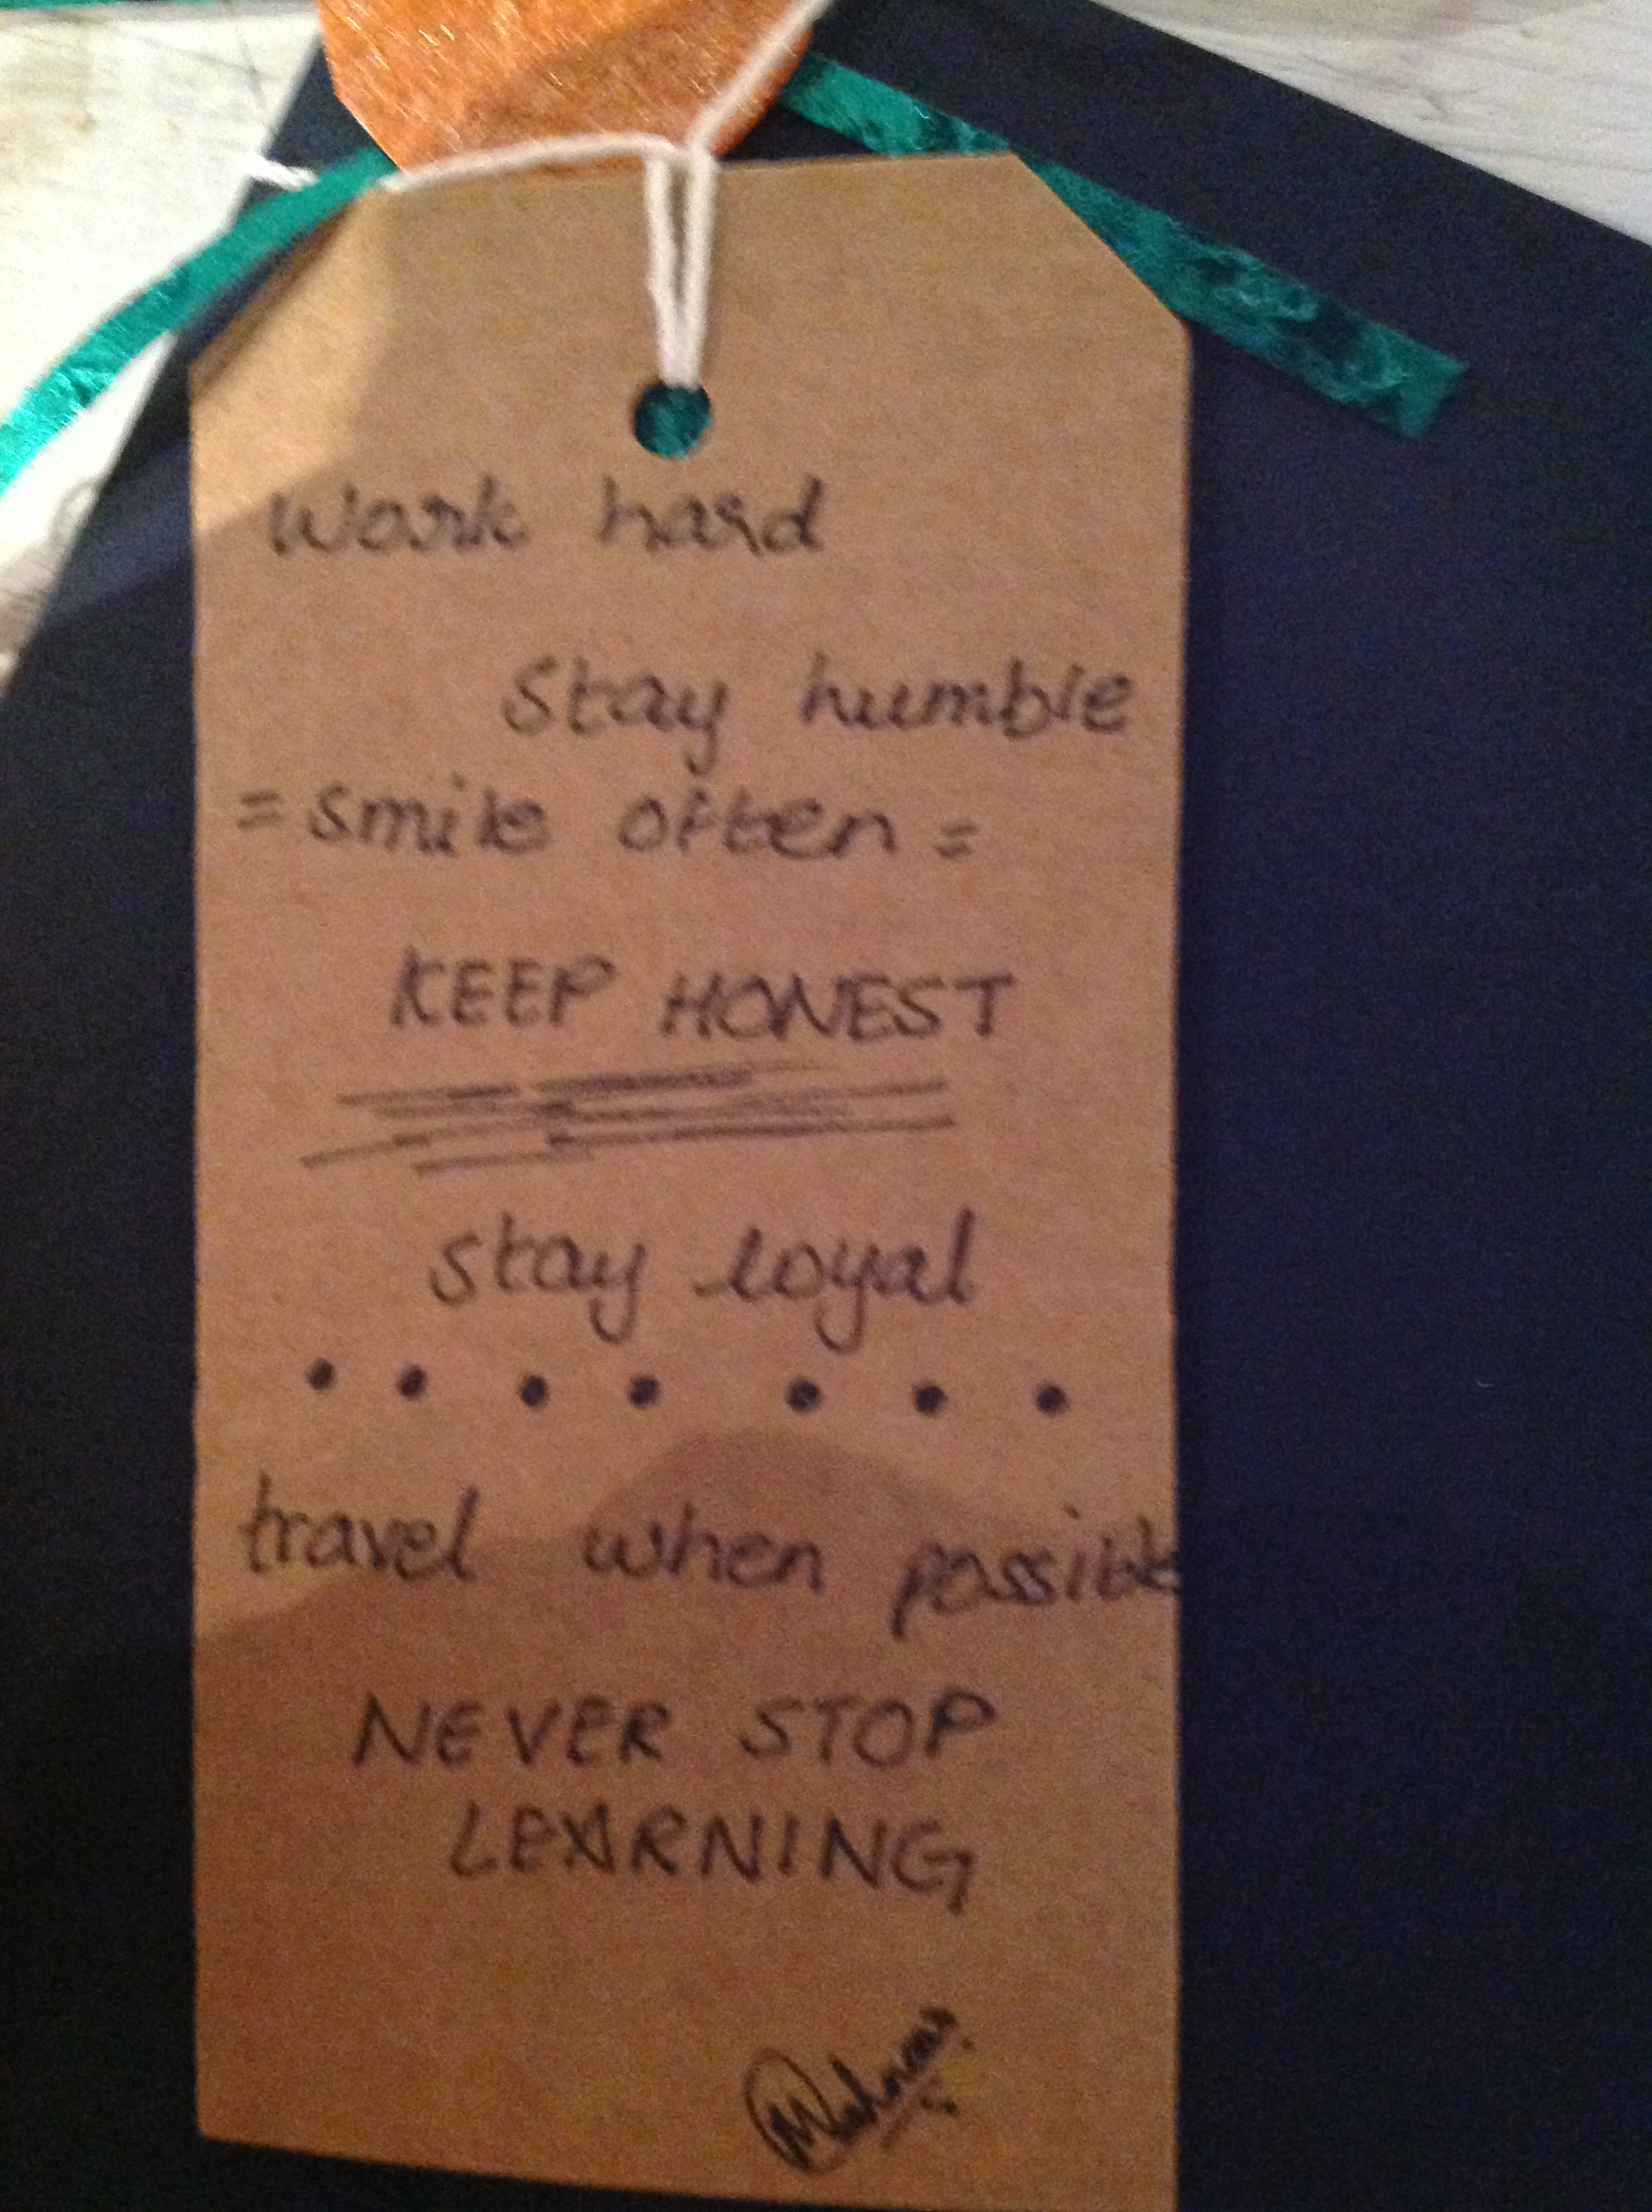 work hard
stay humble
= smile often =
KEEP HONEST
stay loyal
travel when possible
NEVER STOP
LEARNING